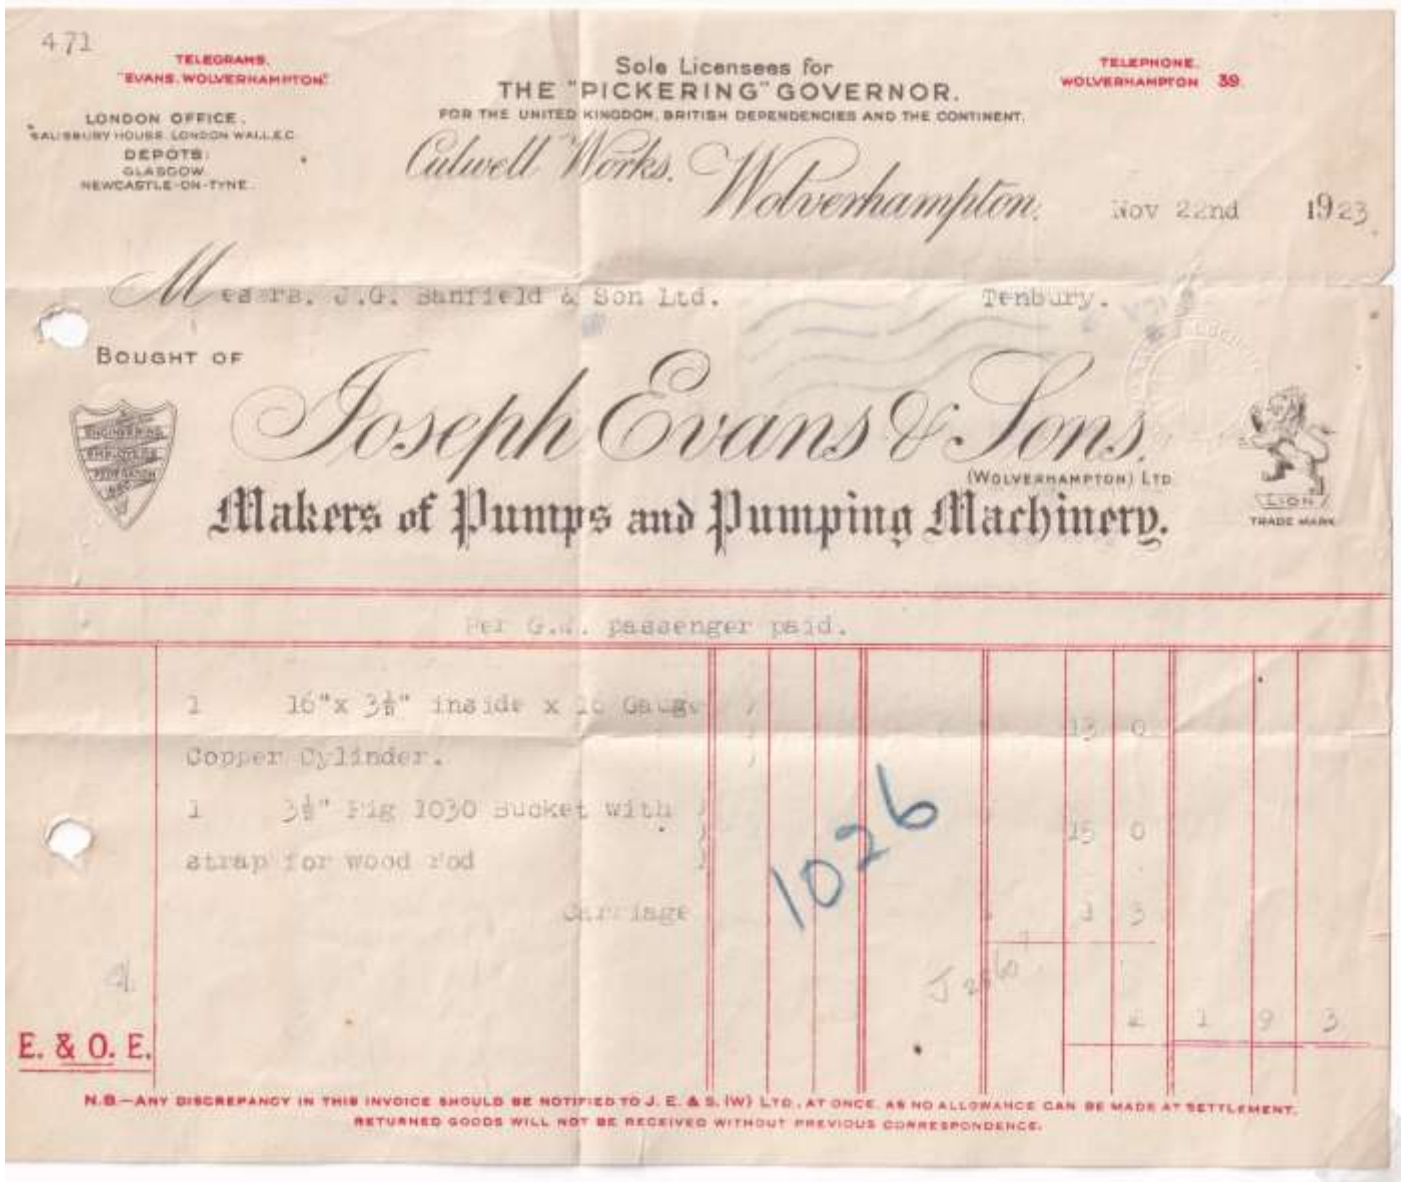 471
TELEGRAMS.
"EVANS. WOLVERHAMPTON."
LONDON OFFICE.
SALISBURY HOUSE. LONDON WALL.E.C.
DEPÔTS:
GLASGOW.
NEWCASTLE-ON-TYNE.
Sole Licensees for
THE "PICKERING" GOVERNOR.
FOR THE UNITED KINGDOM, BRITISH DEPENDENCIES AND THE CONTINENT.
TELEPHONE.
WOLVERHAMPTON 39.
Culwell Works,
Wolverhampton,
Nov 22nd 1923.
Messrs. J.G. Banfield & Son Ltd. Tenbury.
BOUGHT OF
Joseph Evans & Sons,
(WOLVERHAMPTON) LTD
ENGINEERING
EMPLOYERS
FEDERATION
LION
TRADE MARK
Makers of Pumps and Pumping Machinery.
Per G.W. passenger paid.
1 16"x 3⅛" inside x 16 Gauge
Copper Cylinder. 13 0
1 3⅛" Fig 1030 Bucket with
strap for wood rod 15 0
Carriage 1 3
1026
£ 1 9 3
E. & O. E.
N.B.—ANY DISCREPANCY IN THIS INVOICE SHOULD BE NOTIFIED TO J. E. & S. (W) LTD., AT ONCE. AS NO ALLOWANCE CAN BE MADE AT SETTLEMENT.
RETURNED GOODS WILL NOT BE RECEIVED WITHOUT PREVIOUS CORRESPONDENCE.